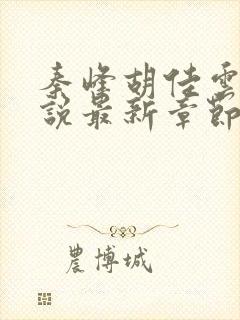 秦峰胡佳雲
說最新章節
農博城